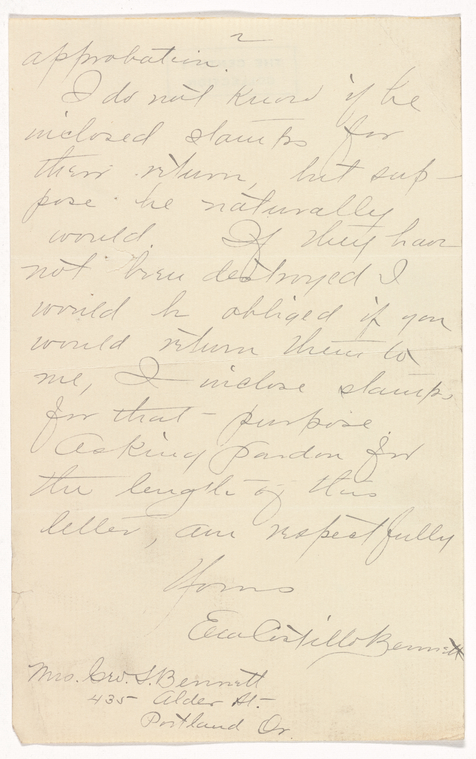 2
approbation.
I do not know if he
inclosed stamps for
their return, but sup-
pose he naturally
would. If they have
not been destroyed I
would be obliged if you
would return them to
me, I inclose stamps
for that purpose.
Asking pardon for
the length of this
letter, am respectfully
Yours
Eva Costillo Bennett
Mrs. Geo. S. Bennett
435 Alder St.
Portland Or.